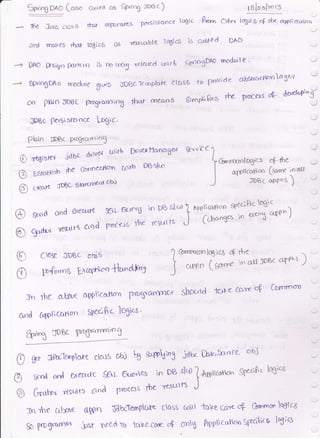 Spring DAO (also called as Spring JDBC)
→ The Java class that separates persistance logic from other logics of the application
and makes that logics as reusable logics is called DAO
→ DAO Design pattern is no way related with SpringDAO module.
→ SpringDAO module gives JDBC Template class to provide abstraction layer
on plain JDBC programming that means simplifies the process of developing
JDBC persistence Logic.
Plain JDBC programming
① register jdbc driver with DriverManager Service
② Establish the connection with DB s/w
③ create JDBC Statement obj
Common logics of the
application (same in all
JDBC appns)
④ send and execute SQL Query in DB s/w
⑤ Gather results and process the results
Application specific logic
(changes in every appn)
⑥ Close JDBC objs
⑦ performs Exception Handling
Common logics of the
appn (same in all JDBC appns)
In the above application programmer should take care of Common
and application specific logics.
Spring JDBC programming
① get JdbcTemplate class obj by supplying jdbc DataSource obj
② send and execute SQL Queries in DB s/w
③ Gather results and process the results
Application Specific logics
In the above appn JdbcTemplate class will take care of Common logics
so programmer just need to take care of only Application Specific logics